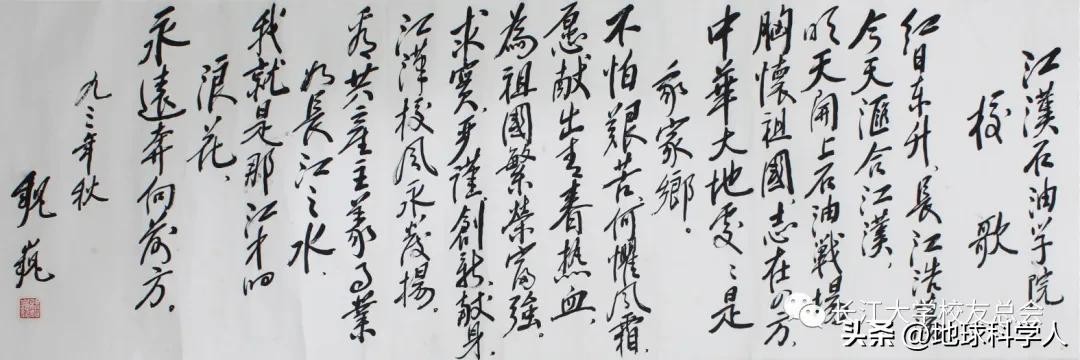 江漢石油学院
校歌
红日东升,長江浩蕩
今天滙合江漢,
明天開上石油戰場
胸懷祖國,志在四方
中華大地處々是
我家鄉。
不怕艱苦,何懼風霜,
愿献出青春熱血,
為祖國繁榮富強。
求實,严謹,創新,献身,
江漢校风永发揚。
看共产主義事業
如長江之水,
我就是那江中的
浪花,
永遠奔向前方。
九三年秋
长江大学校友总会
头条 @地球科学人